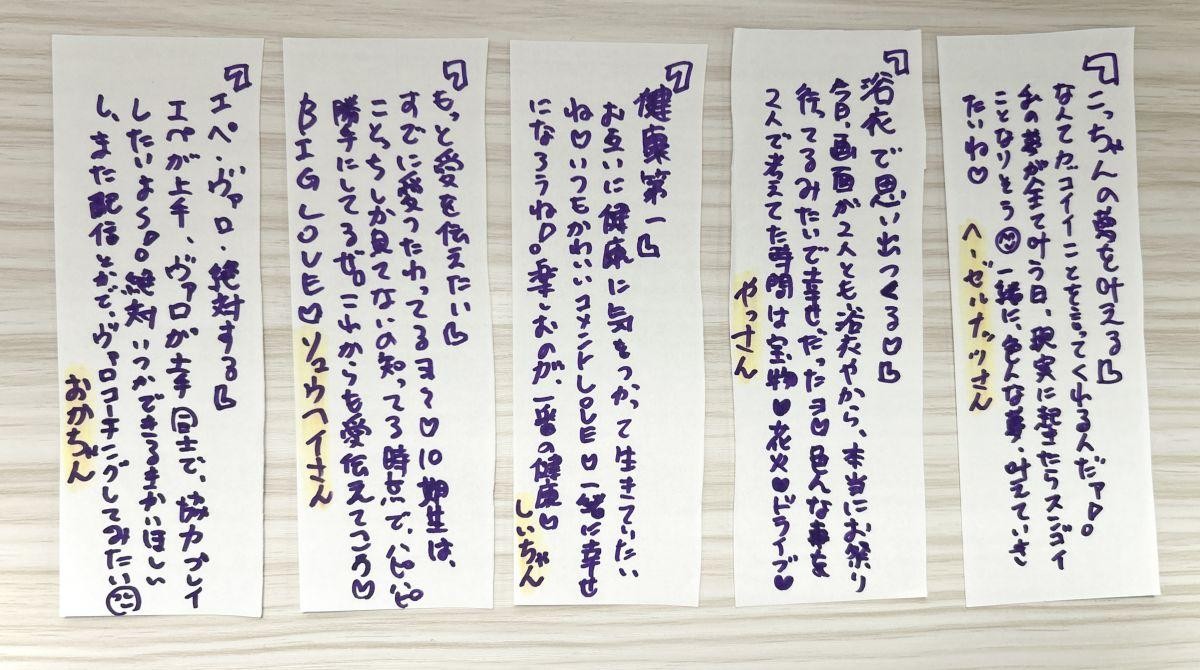 『こっちゃんの夢を叶える』
なんてカッコイイことを言ってくれるんだァ!!
私の夢が全て叶う日、現実に起きたらスンゴイ
ことなりそう 一緒に、色んな夢、叶えていき
たいね♡
ヘーゼルナッツさん
『浴衣で思い出つくる♡』
今日、画面が2人とも、浴衣やから、本当にお祭り
行ってるみたいで幸せだったヨ♡色んな事を
2人で考えてた時間は宝物♥花火♥ドライブ♥
やっさん
『健康第一』
お互いに健康に気をつかって生きていたい
ね♡いつもかわいいコメントLOVE♡一緒に幸せ
になろうね!!楽しむのが、一番の健康♡
しいちゃん
『もっと愛を伝えたい』
すでに愛つたわってるヨ?♡10期生は、
こっちしか見てないの知ってる時点で、ハピハピ
勝手にしてるぜ。これからも愛伝えてこう♡
BIG LOVE♡
リュウヘイさん
『エペ・ヴァロ・絶対する』
エペが上手、ヴァロが上手同士で、協力プレイ
したいよ〜!!絶対いつかできるまかいほしい
し、また配信とかで、ヴァロコーチングしてみたい
おかちゃん